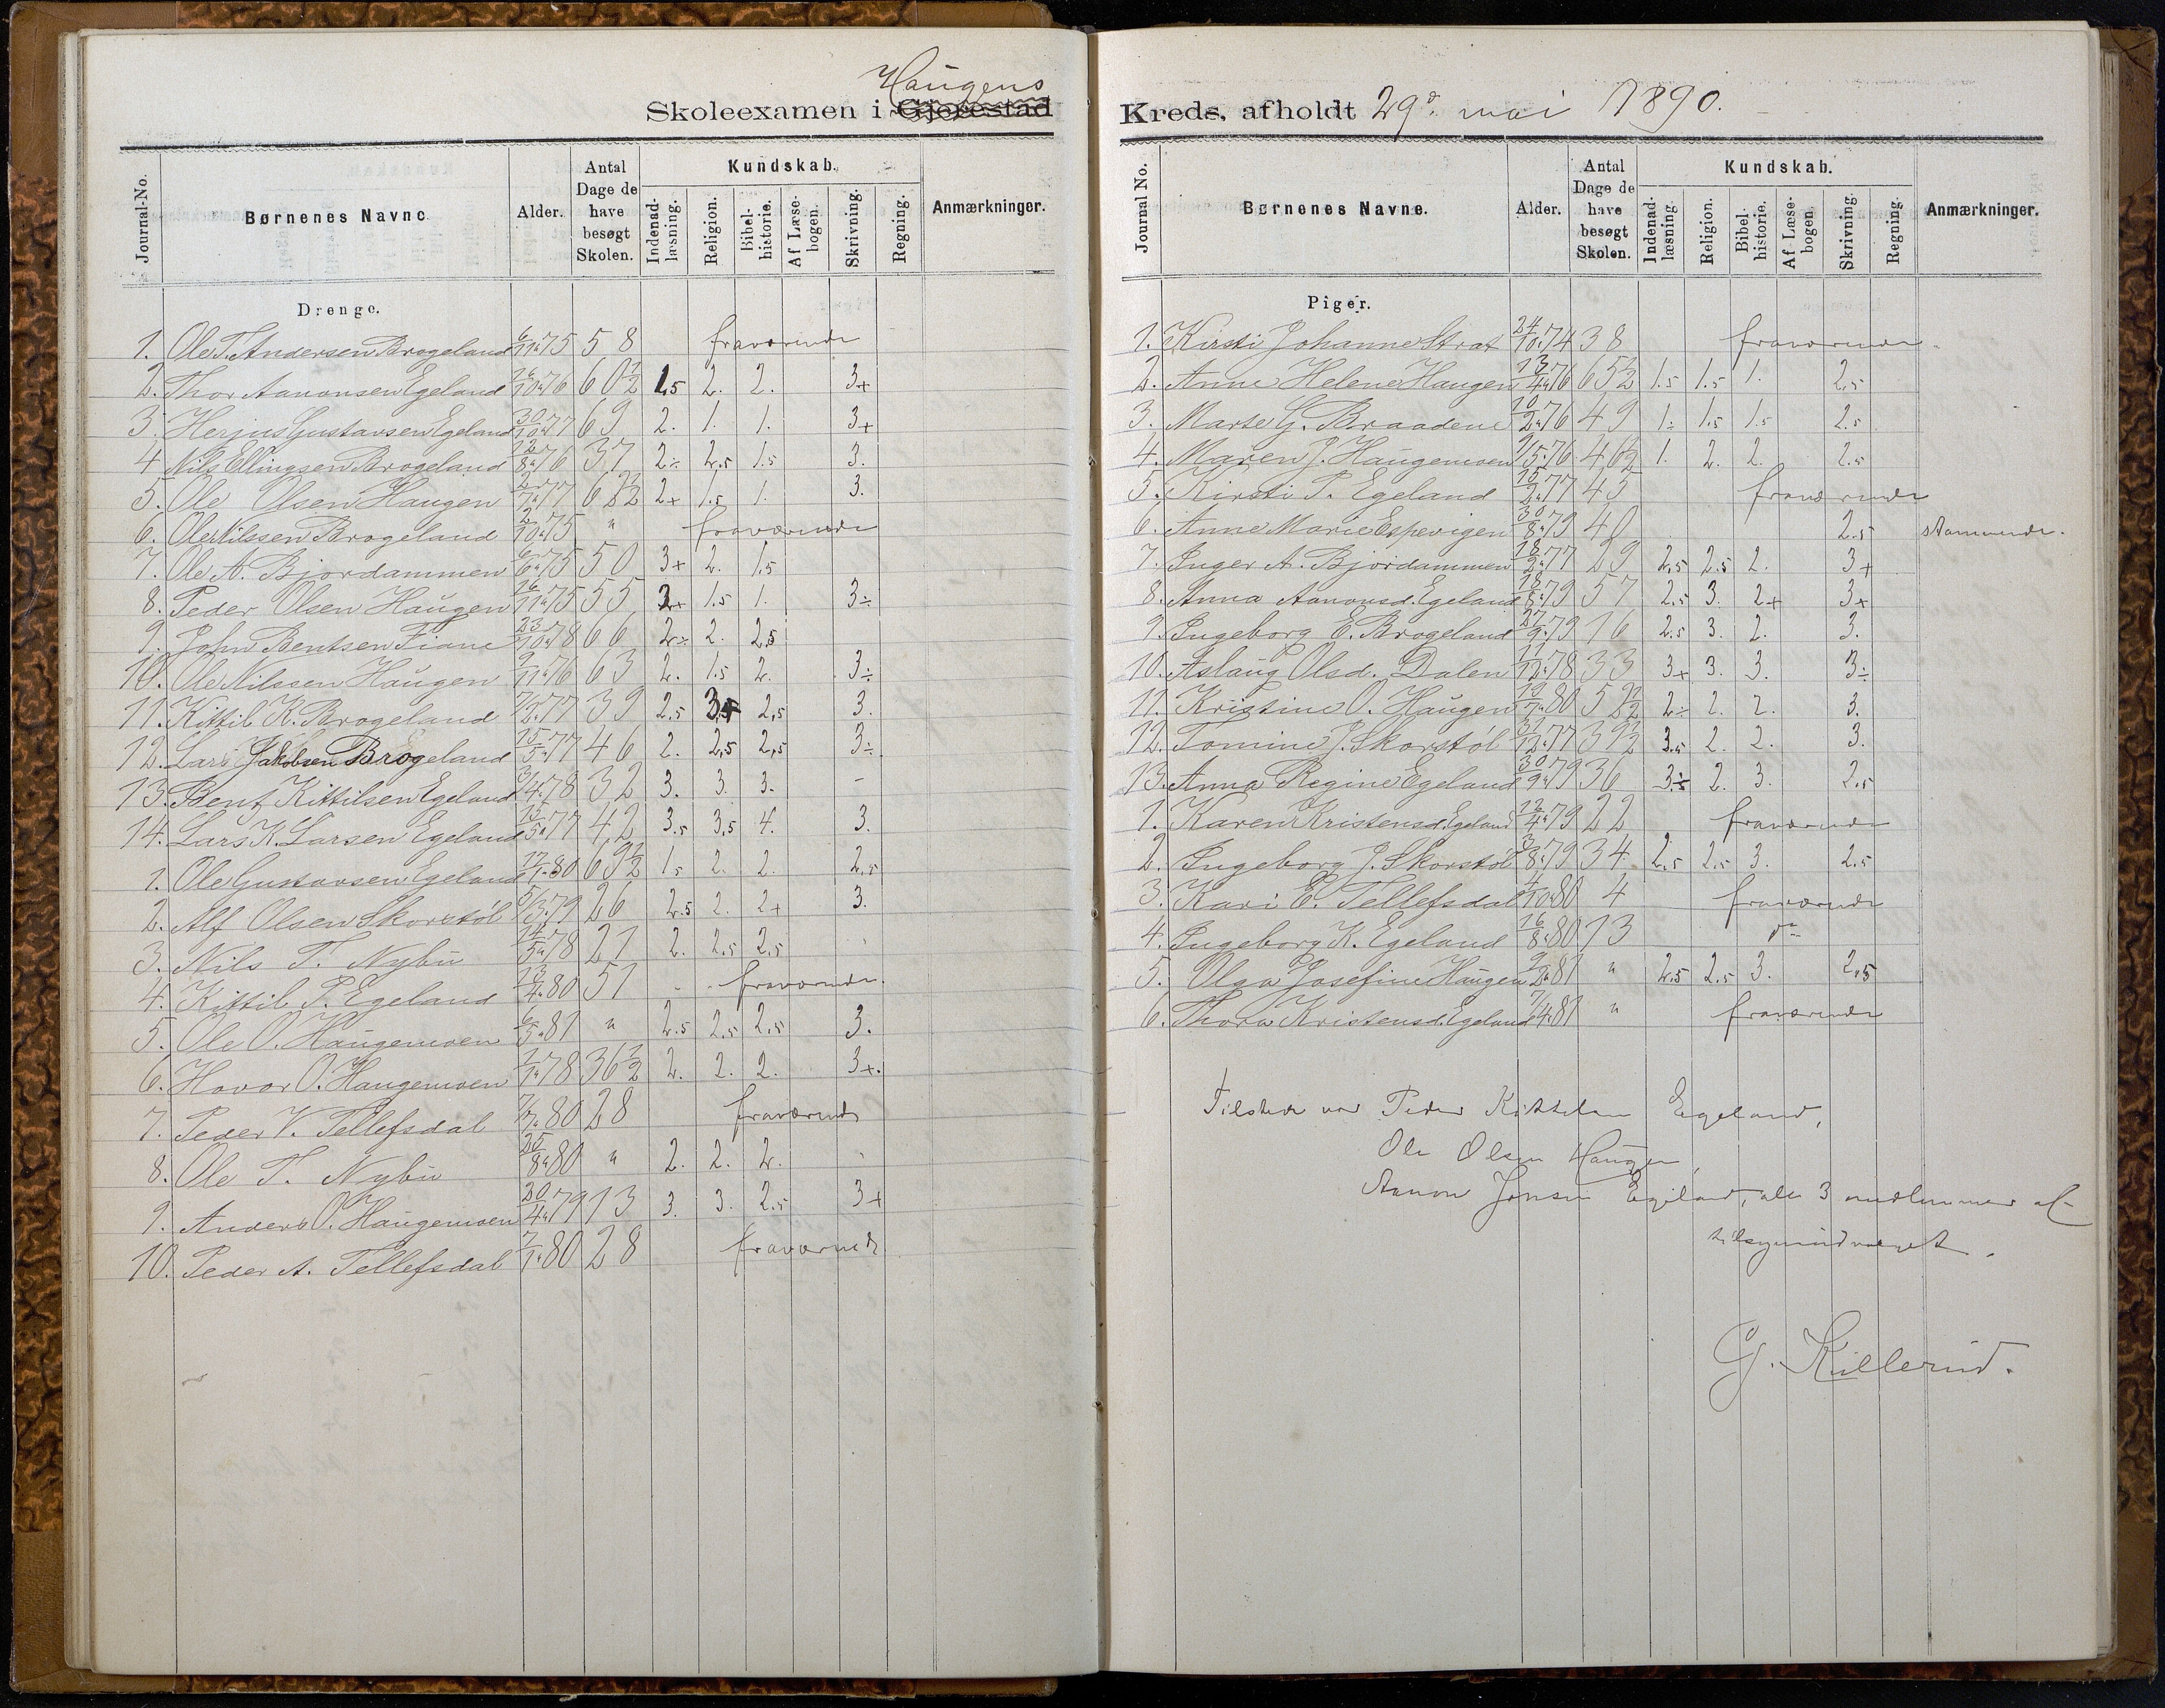 Haugens
Skoleexamen i Gjerestad
Journal-No.
Børnenes Navne.
Alder.
Antal Dage de have besøgt Skolen.
Kundskab.
Indenad-læsning.
Religion.
Bibel-historie.
Af Læse-bogen.
Skrivning.
Regning.
Anmærkninger.
Drenge.
1. Ole T. Andersen Brogeland 6/11 75 58 fraværende
2. Thor Aanonsen Egeland 16/10 76 60 1/2 1.5 2. 2. 3+
3. Herjus Gustavsen Egeland 30/10 77 69 2. 1. 1. 3+
4 Nils Ellingsen Brogeland 12/8 76 37 2÷ 2.5 1.5 3.
5. Ole Olsen Haugen 2/7 77 68 1/2 2+ 1.5 1. 3.
6. Ole Nilssen Brogeland 2/10 75 " fraværende
7. Ole A. Bjordammen 6/6 75 50 3+ 2. 1.5
8. Peder Olsen Haugen 16/11 75 55 2+ 1.5 1. 3÷
9. John Bentsen Fiane 23/10 78 66 2÷ 2. 2.5
10. Ole Nilssen Haugen 9/11 76 63 2. 1.5 2. 3÷
11. Kittil K. Brogeland 7/2 77 39 2.5 3+ 2.5 3.
12. Lars Jakobsen Brogeland 15/5 77 46 2. 2.5 2.5 3÷
13. Bent Kittilsen Egeland 3/4 78 32 3. 3. 3. -
14. Lars K. Larsen Egeland 15/5 77 42 3.5 3.5 4. 3.
1. Ole Gustavsen Egeland 17/1 80 69 1/2 1.5 2. 2. 2.5
2. Alf Olsen Skorstøl 5/3 79 26 2.5 2. 2+ 3.
3. Nils T. Nybu 14/5 78 21 2. 2.5 2.5
4. Kittil P. Egeland 13/4 80 51 fraværende.
5. Ole O. Haugemoen 6/5 81 " 2.5 2.5 2.5 3.
6. Hovor O. Haugemoen 1/1 78 36 1/2 2. 2. 2. 3+.
7. Peder V. Tellefsdal 7/7 80 28 fraværende
8. Ole T. Nybu 25/8 80 " 2. 2. 2.
9. Anders O. Haugemoen 20/4 79 13 3. 3. 2.5 3+
10. Peder A. Tellefsdal 7/1 80 28 fraværende
Kreds, afholdt 29de mai 1890.
Journal No.
Børnenes Navne.
Alder.
Antal Dage de have besøgt Skolen.
Kundskab.
Indenad-læsning.
Religion.
Bibel-historie.
Af Læse-bogen.
Skrivning.
Regning.
Anmærkninger.
Piger.
1. Kirsti Johanne Strat 24/10 74 38 fraværende.
2. Anne Helene Haugen 13/4 76 65 1/2 1.5 1.5 1. 2.5
3. Marte G. Braadene 10/2 76 49 1÷ 1.5 1.5 2.5
4. Maren J. Haugemoen 9/5 76 46 1/2 1. 2. 2. 2.5
5. Kirsti P. Egeland 15/2 77 45 fraværende
6. Anne Marie Espevigen 30/8 79 40 2.5 stammende.
7. Inger A. Bjordammen 18/2 77 29 2.5 2.5 2. 3+
8. Anna Aanonsd. Egeland 18/8 79 57 2.5 3. 2+ 3+
9. Ingeborg E. Brogeland 27/9 79 16 2.5 3. 2. 3.
10. Aslaug Olsd. Dalen 11/12 78 33 3+ 3. 3. 3÷
11. Kristine O. Haugen 19/1 80 59 1/2 2÷ 2. 2. 3.
12. Tomine J. Skorstøl 31/12 77 39 1/2 3.5 2. 2. 3.
13. Anna Regine Egeland 30/9 79 36 3÷ 2. 3. 2.5
1. Karen Kristensd. Egeland 12/4 79 22 fraværende
2. Ingeborg J. Skorstøl 3/8 79 34 2.5 2.5 3. 2.5
3. Kari E. Tellefsdal 4/10 80 4 fraværende
4. Ingeborg K. Egeland 16/8 80 13 do
5. Olga Josefine Haugen 9/2 81 " 2.5 2.5 3. 2.5
6. Thora Kristensd. Egeland 7/4 81 " fraværende
Tilstede var Peder Kittelsen Egeland,
Ole Olsen Haugen,
Aanon Jensen Egeland, alle 3 medlemmer af
tilsynsudvalget.
G. Killerud.